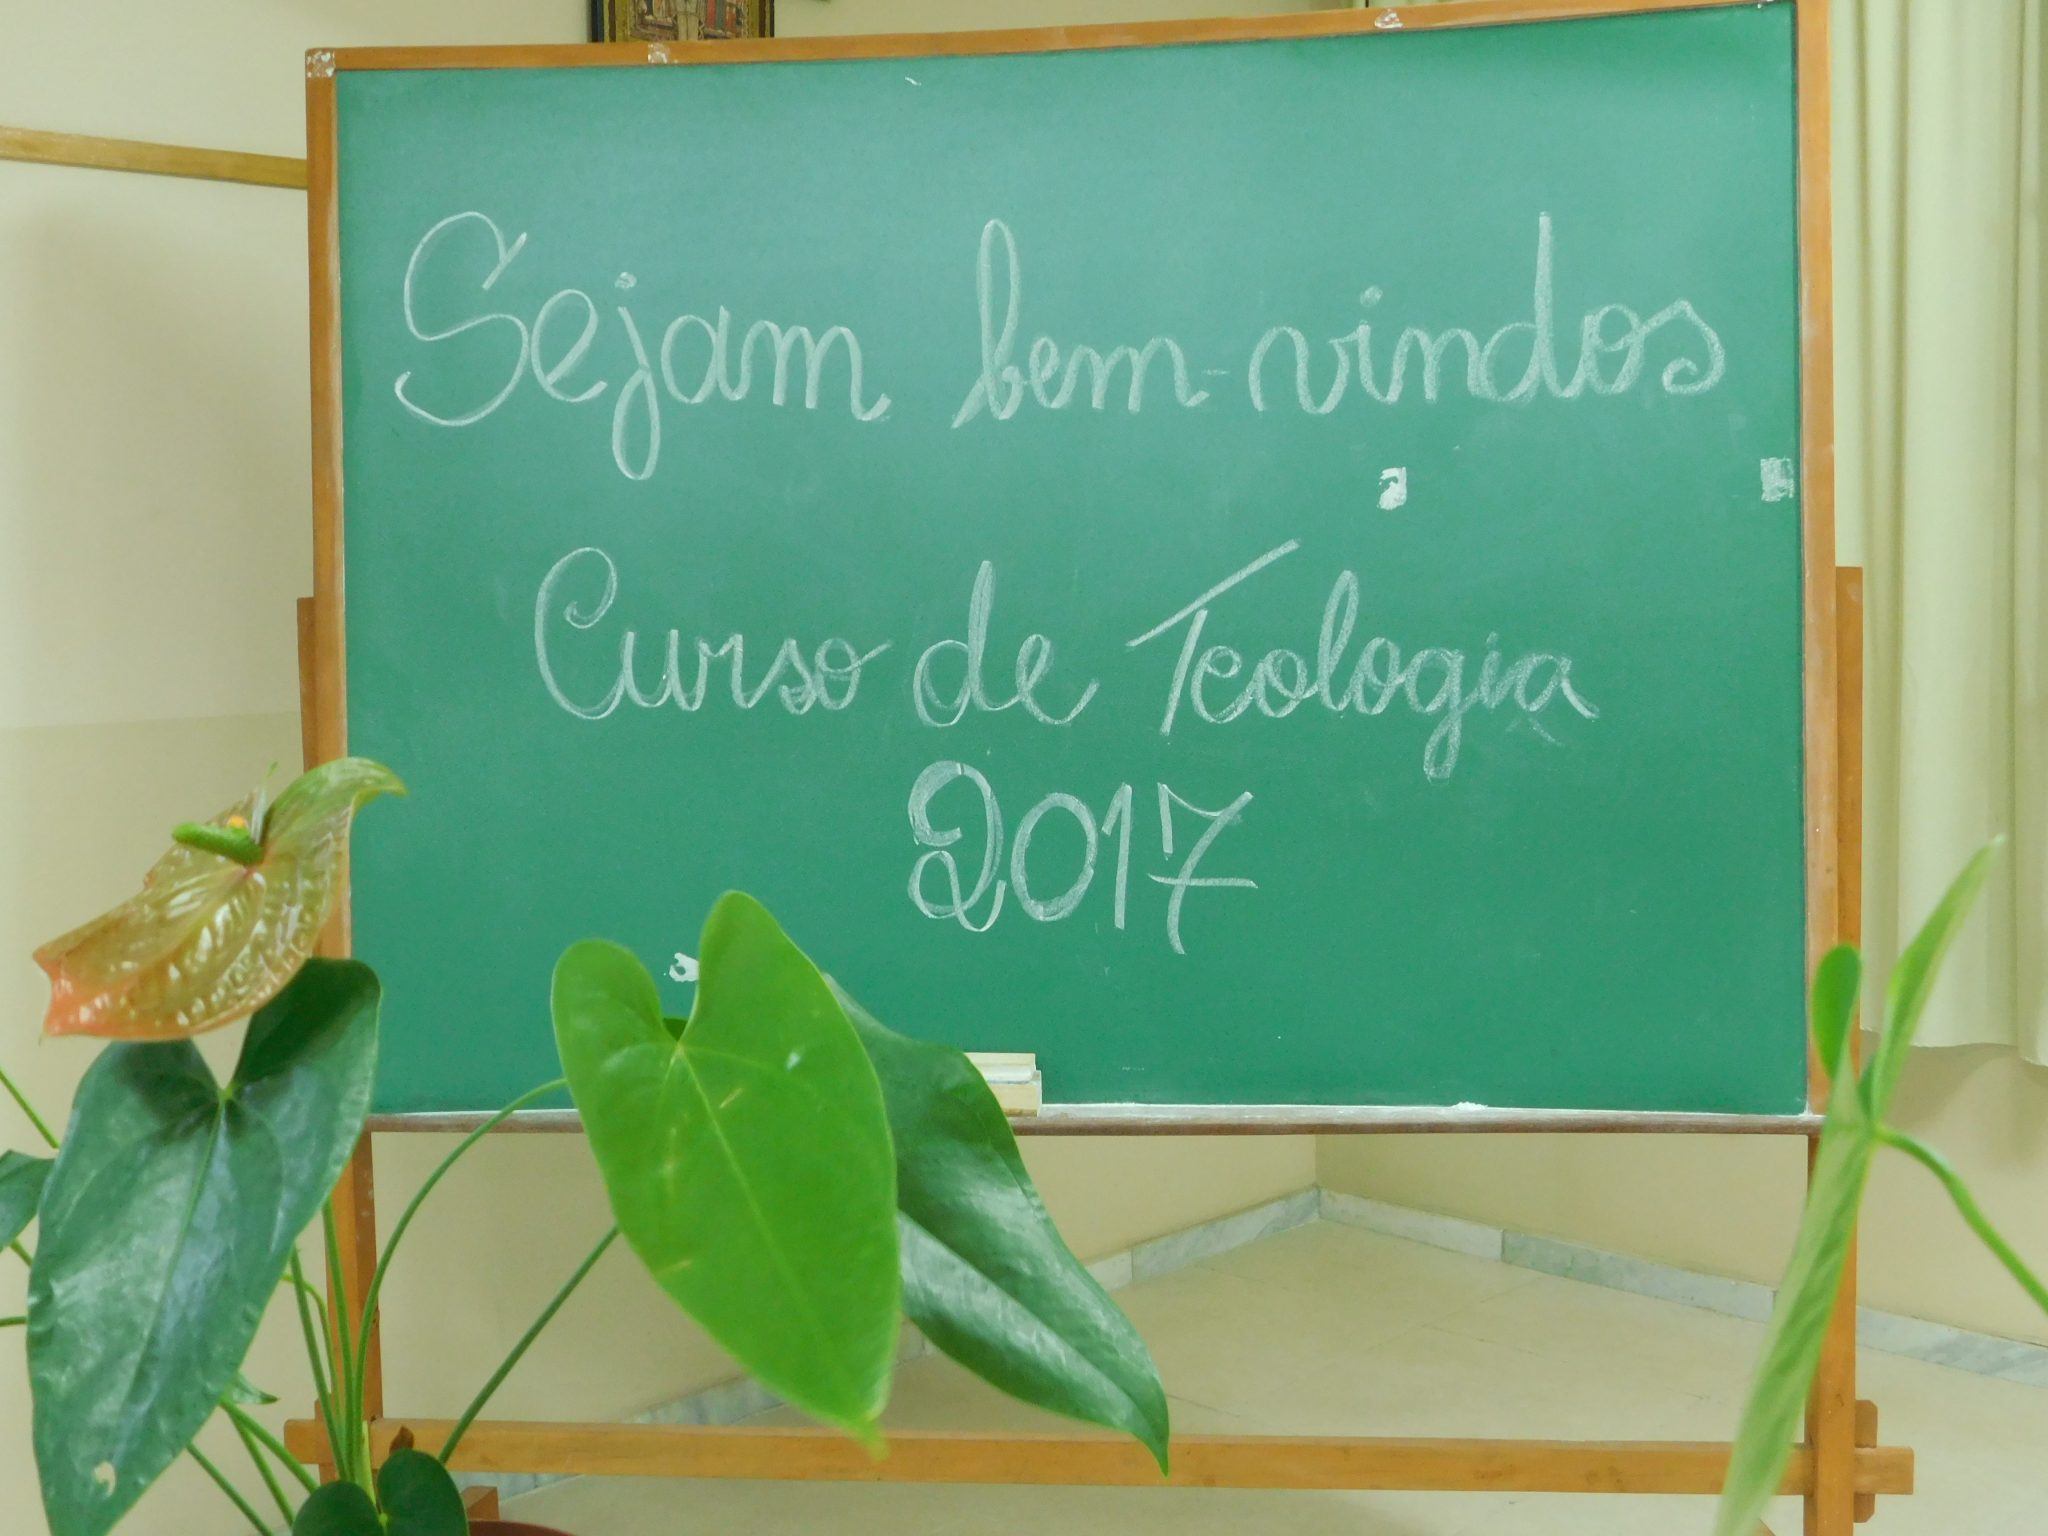 Sejam bem-vindos
Curso de Teologia
2017